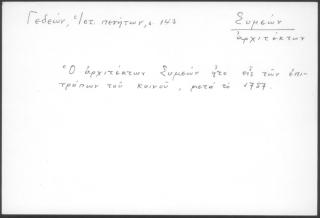 Γεδεών, Ἱστ. πενήτων, σ. 143
Συμεών
ἀρχιτέκτων
Ὁ ἀρχιτέκτων Συμεών ἦτο εἷς τῶν ἐπι-
τρόπων τοῦ κοινοῦ, μετά τό 1757.